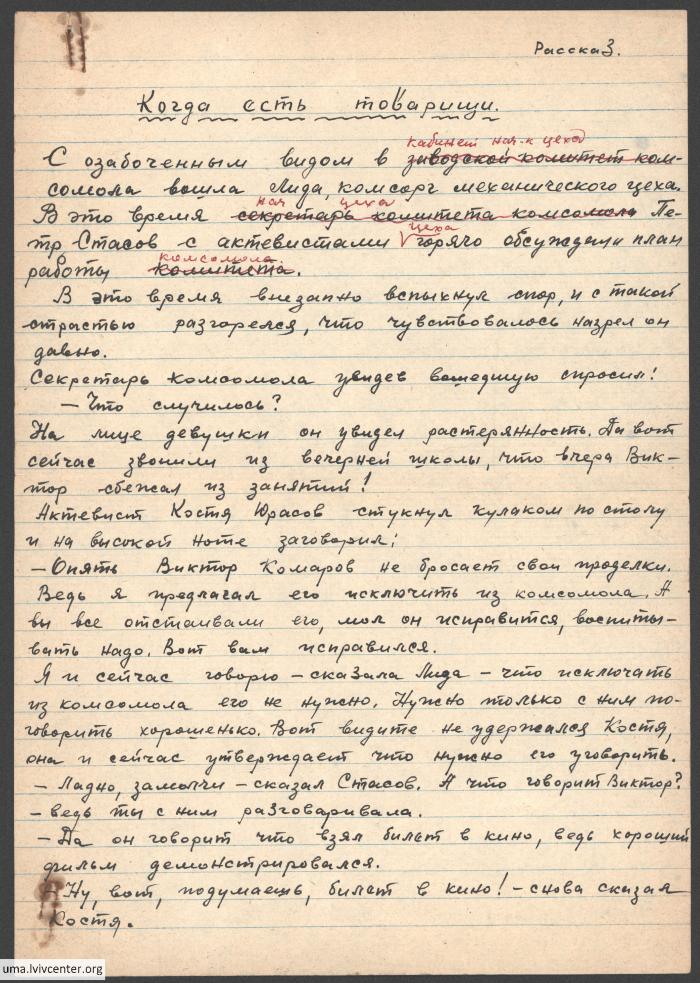 Рассказ.
Когда есть товарищи.
кабинет нач-к цеха
С озабоченным видом в заводской комитет ком-
сомола вошла Лида, комсорг механического цеха.
нач цеха
В это время секретарь комитета комсомола Пе-
цеха
тр Стасов с актевистами горячо обсуждали план
комсомола
работы комитета.
В это время внезапно вспыхнул спор, и с такой
страстью разгорелся, что чувствовалось назрел он
давно.
Секретарь комсомола увидев вошедшую спросил!
— Что случилось?
На лице девушки он увидел растерянность. Да вот
сейчас звонили из вечерней школы, что вчера Вик-
тор сбежал из занятий!
Актевист Костя Юрасов стукнул кулаком по столу
и на высокой ноте заговорил;
— Опять Виктор Комаров не бросает свои проделки.
Ведь я предлагал его исключить из комсомола. А
вы все отстаивали его, мол он исправится, воспиты-
вать надо. Вот вам исправился.
Я и сейчас говорю — сказала Лида — что исключать
из комсомола его не нужно. Нужно только с ним по-
говорить хорошенько. Вот видите не удержался Костя,
она и сейчас утверждает что нужно его уговорить.
— Ладно, замолчи — сказал Стасов. А что говорит Виктор?
— ведь ты с ним разговаривала.
— Да он говорит что взял билет в кино, ведь хороший
фильм демонстрировался.
Ну, вот, подумаешь, билет в кино! — снова сказал
Костя.
uma.lvivcenter.org